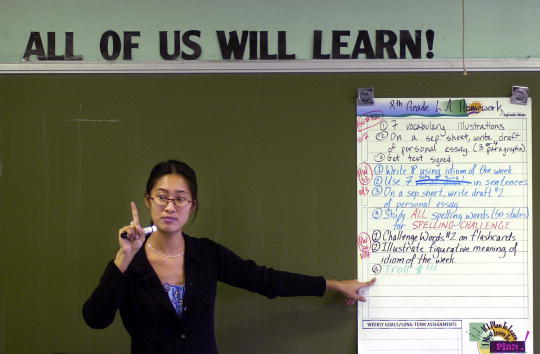 ALL OF US WILL LEARN!
8th Grade L A Homework
① 7 vocabulary illustrations
② On a sep. sheet, write draft
of personal essay. (3 or 4 paragraphs)
③ Get test signed.
① Write ¶ using idiom of the week
② Use 7 in sentences
③ On a sep sheet, write draft #2
of personal essay
④ Study ALL spelling words (50 states)
for SPELLING CHALLENGE
① Challenge Words #2 on flashcards
② Illustrate figurative meaning of
idiom of the week
③ Troll $!!!
WEEKLY GOALS/LONG-TERM ASSIGNMENTS
Plan!